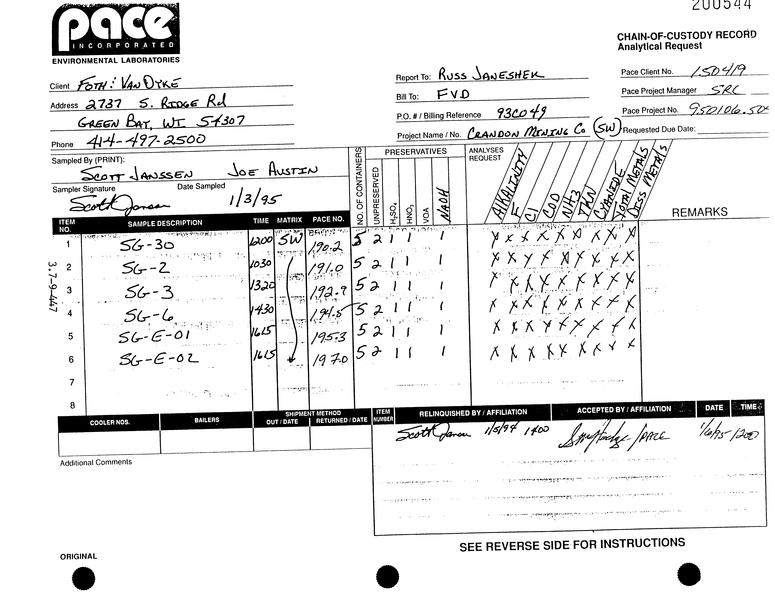 200544
pace
INCORPORATED
ENVIRONMENTAL LABORATORIES
CHAIN-OF-CUSTODY RECORD
Analytical Request
Client FOTH : VAN DYKE
Address 2737 S. RIDGE Rd
GREEN BAY, WI 54307
Phone 414-497-2500
Report To: RUSS JANESHEK
Bill To: FVD
P.O. # / Billing Reference 93C049
Project Name / No. CRANDON MINING CO (SW)
Pace Client No. 150419
Pace Project Manager SRC
Pace Project No. 950106.50
Requested Due Date:
Sampled By (PRINT):
SCOTT JANSSEN JOE AUSTIN
Sampler Signature Date Sampled
Scott Jansen 1/3/95
NO. OF CONTAINERS
PRESERVATIVES
UNPRESERVED
H2SO4
HNO3
VOA
NAOH
ANALYSES REQUEST
ALKALINITY
F
Cl
COD
NH3
TKN
CYANIDE
TOTAL METALS
DISS METALS
REMARKS
ITEM NO. SAMPLE DESCRIPTION TIME MATRIX PACE NO.
1 SG-30 1200 SW 190.2 5 2 1 1 1 X X X X X X X X X
2 SG-2 1030 191.0 5 2 1 1 1 X X X X X X X X X
3 SG-3 1320 192.9 5 2 1 1 1 X X X X X X X X X
SG-6 1430 194.5 5 2 1 1 1 X X X X X X X X X
5 SG-E-01 1615 195.3 5 2 1 1 1 X X X X X X X X X
6 SG-E-02 1615 197.0 5 2 1 1 1 X X X X X X X X X
7
8
3.7-9-447
COOLER NOS. BAILERS SHIPMENT METHOD
OUT / DATE RETURNED / DATE
ITEM NUMBER RELINQUISHED BY / AFFILIATION ACCEPTED BY / AFFILIATION DATE TIME
Scott Jansen 1/5/94 1400 /PACE 1/6/95 1200
Additional Comments
SEE REVERSE SIDE FOR INSTRUCTIONS
ORIGINAL